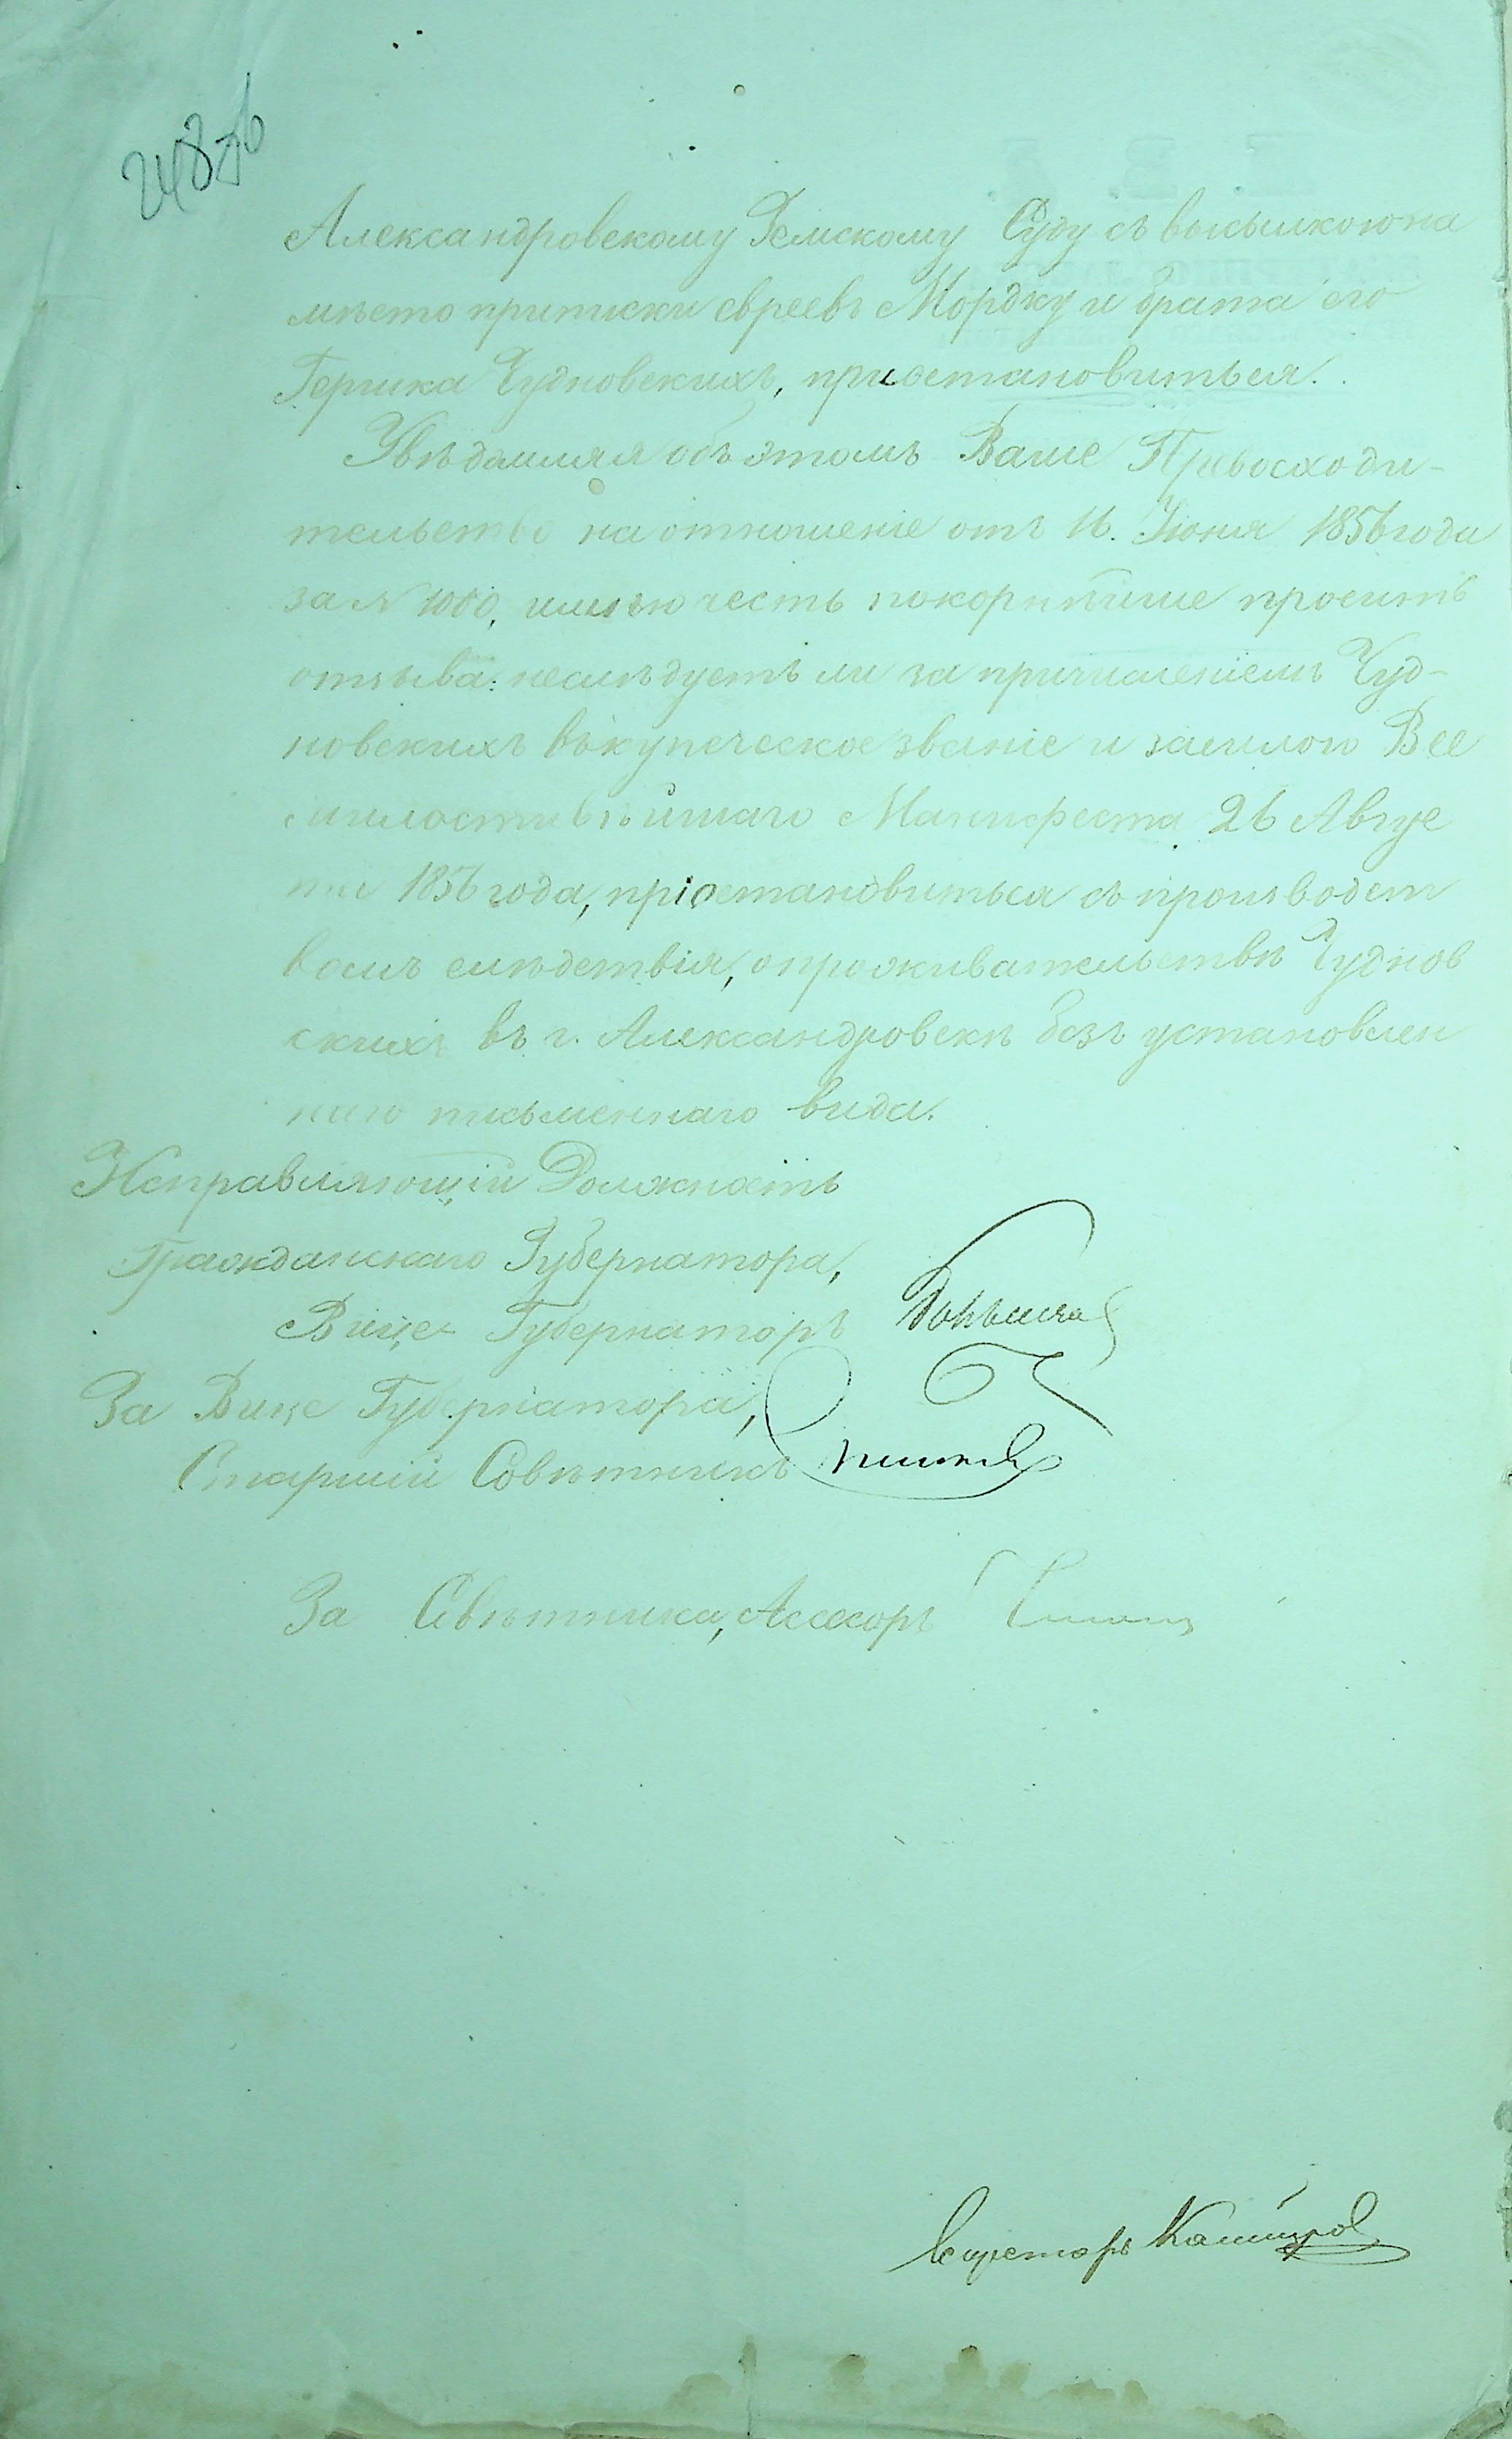 Александровскому Земскому Суду съ высылкою на
мѣсто приписки евреевъ Мордку и брата его
Гершка Чудновскихъ, пріостановиться.
Увѣдомляя объ этомъ Ваше Превосходи-
тельство на отношеніе отъ 16. Іюня 1856 года
за № 1000, имѣю честь покорнѣйше просить
отзыва: неслѣдуетъ ли за причисленіемъ Чуд-
новскихъ въ купеческое званіе и засилою Все
милостивѣйшаго Манифеста 26 Авгус
та 1856 года, пріостановиться съ производст
вомъ слѣдствія, о проживательствѣ Чуднов
скихъ въ г. Александровскѣ безъ установлен
наго письменнаго вида.
Исправляющій Должность
Гражданскаго Губернатора,
Вице-Губернаторъ
За Вице Губернатора,
Старшій Совѣтникъ
За Совѣтника, Асесоръ
Секретарь